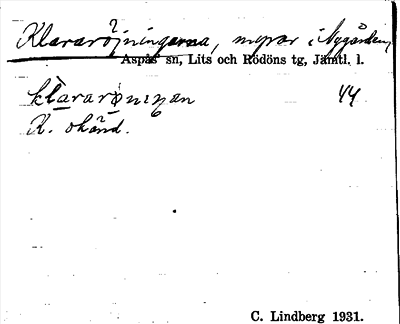 Klararöjningarna, myrar i Nygården,
Aspås sn, Lits och Rödöns tg, Jämtl. l.
klararöniŋan 44.
K. okänd.
C. Lindberg 1931.